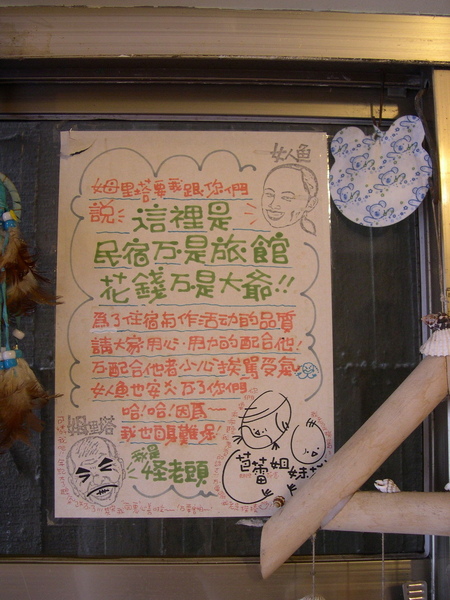 美人魚
姆里塔要我跟你們
說 這裡是
民宿不是旅館
花錢不是大爺!!
為了住宿南作活动的品質
請大家用心.用力的配合他!
不配合他者小心挨罵受氣!
美人魚也安灸不了你們
哈!哈!因為~
我也自身難保!
姆里塔
我是
怪老頭
芭蕾姐妹花